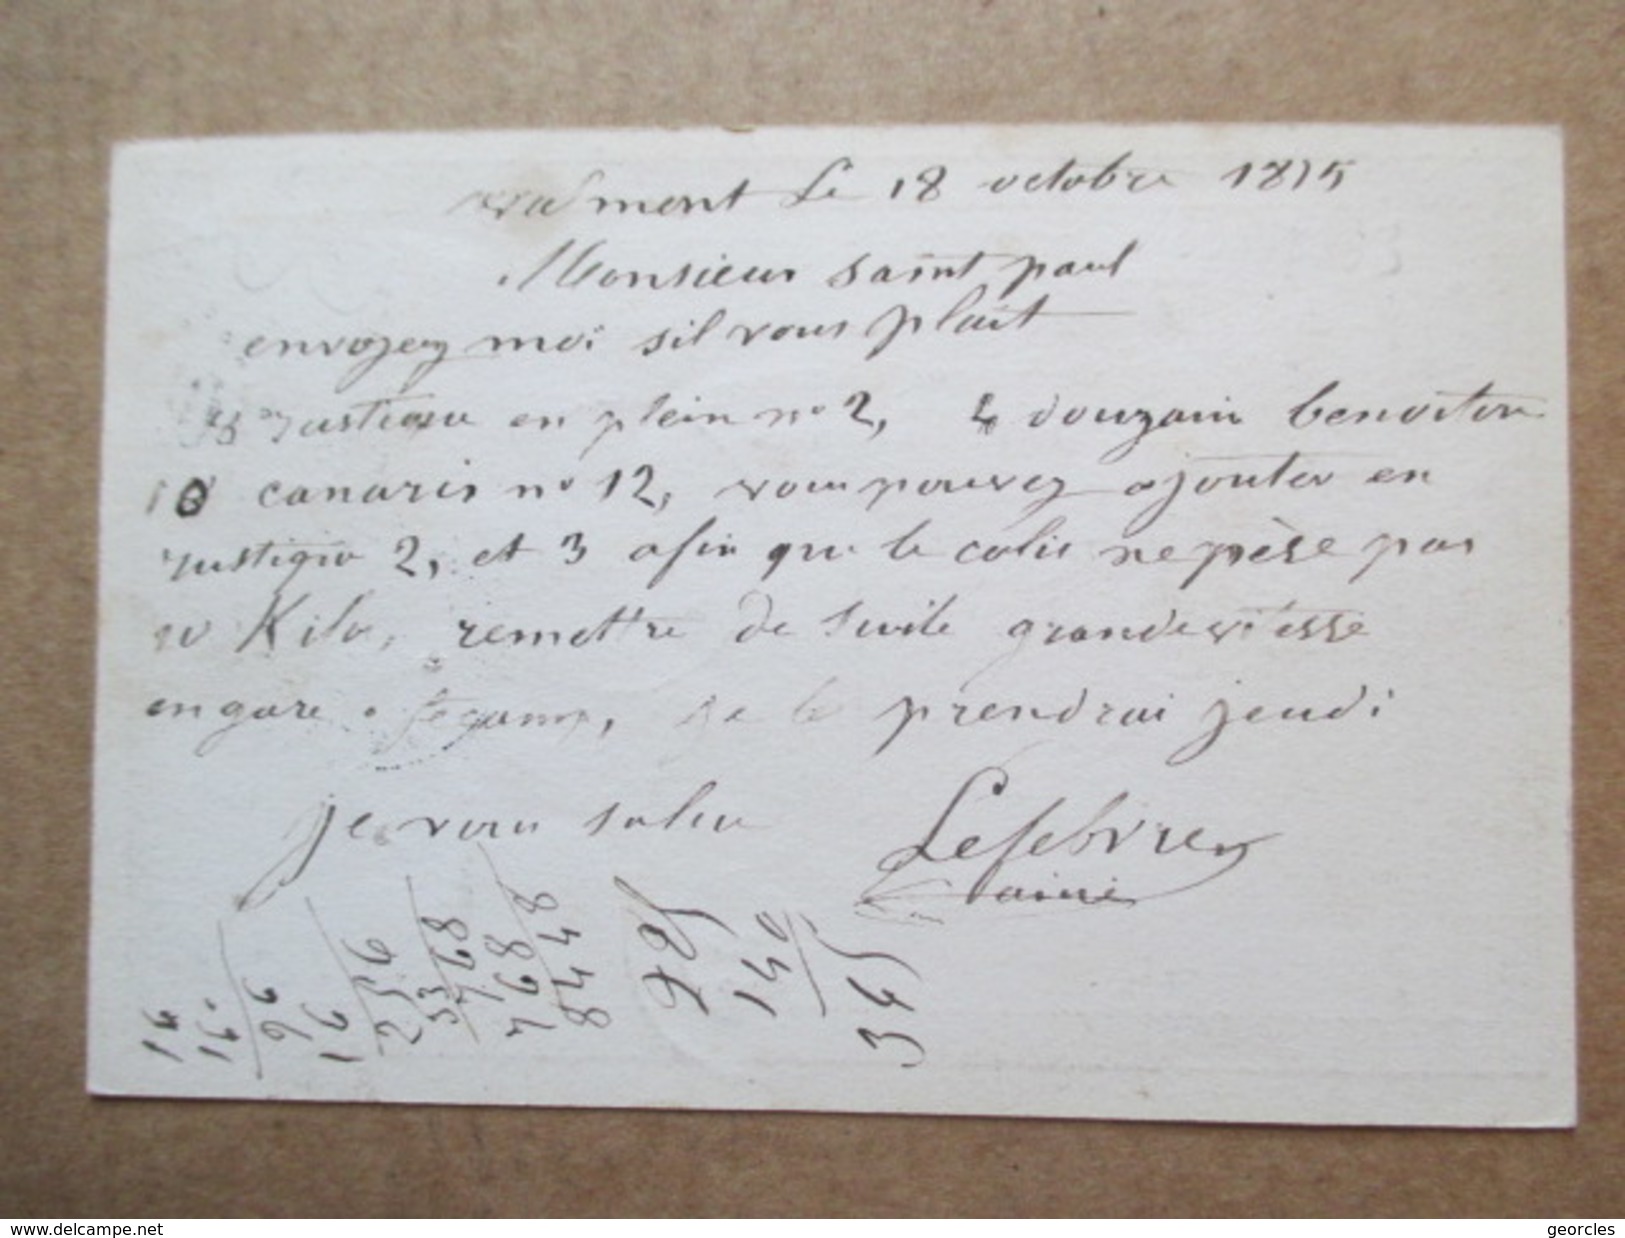 mont Le 18 octobre 1875
Monsieur saint paul
envoyez moi sil vous plait
rustique en plein n° 2, 4 douzain benoiton
10 canaris n° 12, vous pouvez ajouter en
rustique 2, et 3 afin que le colis ne pèse pas
10 Kilo, remettre de suite grande vitesse
en gare a fecamp, je le prendrai jeudi
je vous salue
Lefebvre
ainé
96
16
256
768
768
8448
205
140
345
www.delcampe.net
georcles